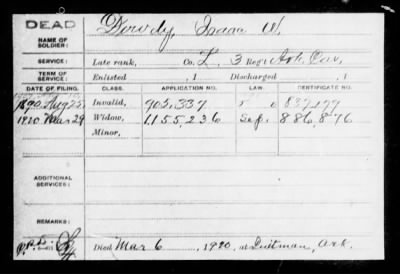 DEAD
NAME OF SOLDIER: Dowdy, Isaac W.
SERVICE: Late rank, Co. L, 3 Reg't Ark. Cav,
TERM OF SERVICE: Enlisted , 1 Discharged , 1
DATE OF FILING. CLASS. APPLICATION NO. LAW. CERTIFICATE NO.
1890 Aug 25 Invalid, 903,337
1920 Mar 29 Widow, 1,155,236 886,876
Minor,
ADDITIONAL SERVICES:
REMARKS:
Died Mar 6, 1920, at Quitman, Ark.